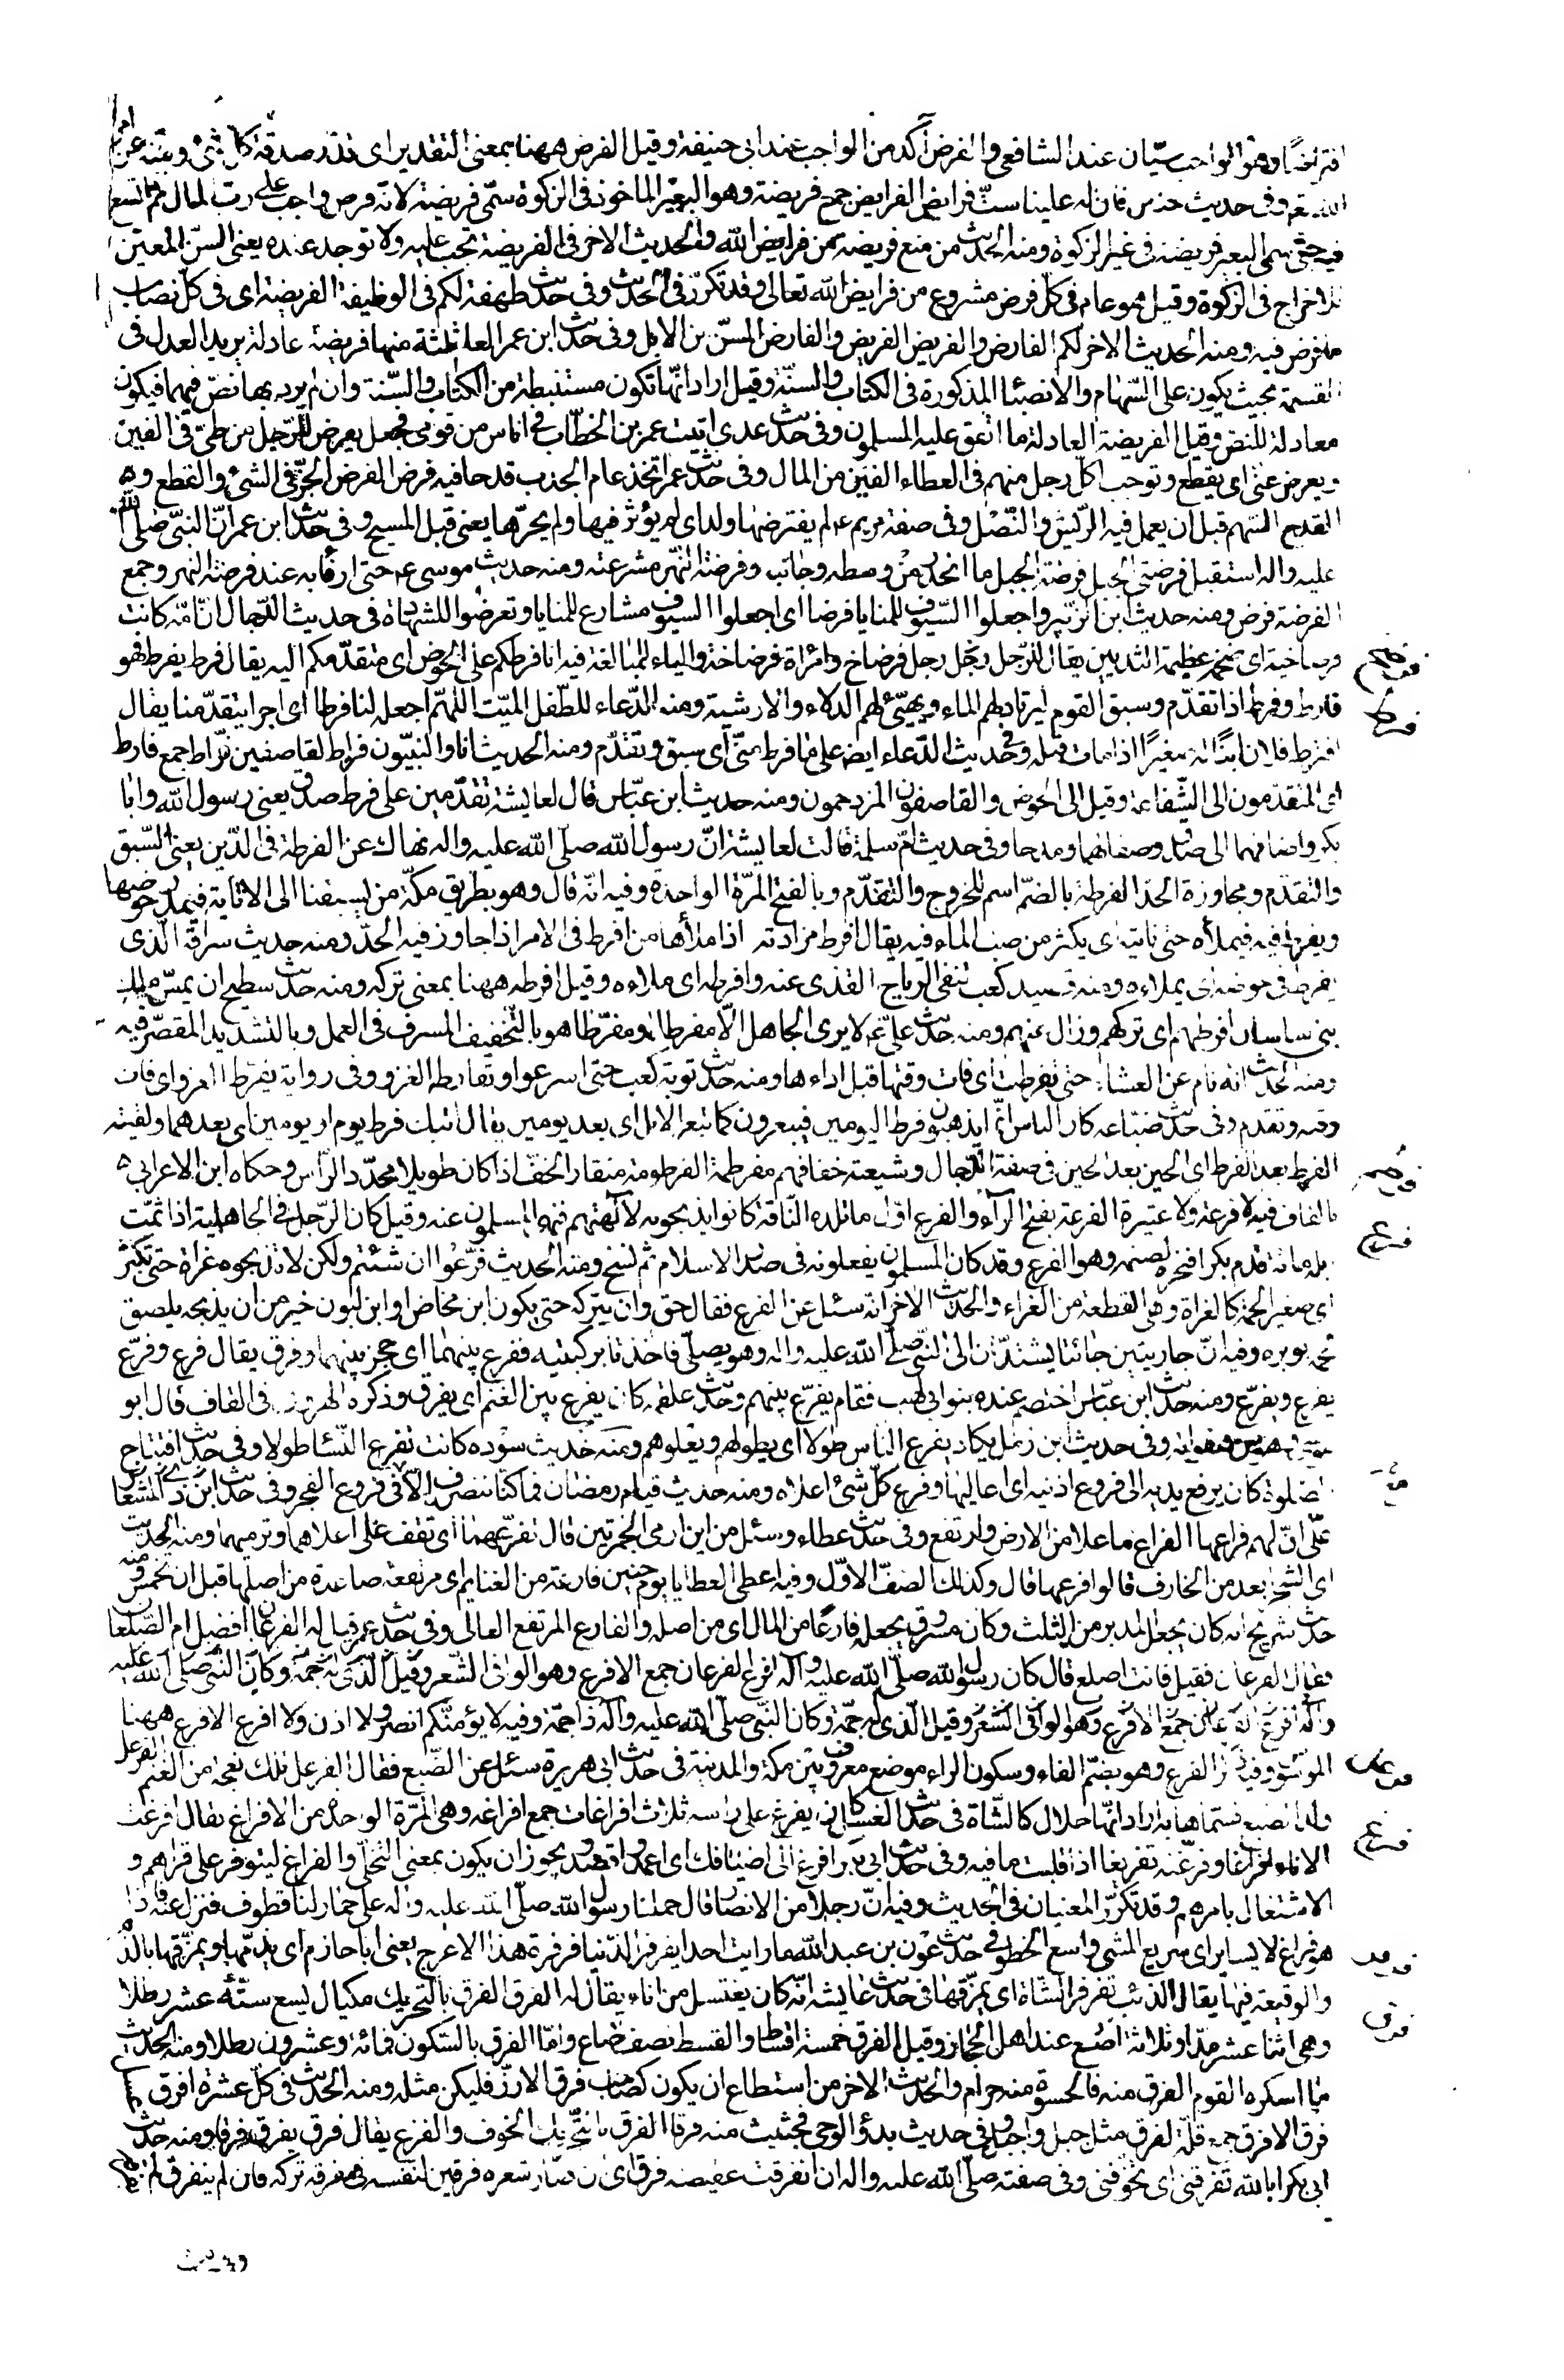 افتراضا وهو والواجب سيّان عند الشافعي والفرض آكد من الواجب عند ابي حنيفة وقيل الفرض ههنا بمعنى التقدير اى قدّر صدقة كلّ شئ وبيّنه عن امر
الله تعالى وفى حديث حنين فان له علينا ستّ فرايض الفرايض جمع فريضة وهو البعير الماخوذ فى الزكوة سمّى فريضة لانّه فرض واجب على ربّ المال ثم اتّسع
فيه حتى سمى البعير فريضة فى غير الزكوة ومنه الحديث من منع فريضة من فرايض الله والحديث الاخر فى الفريضة تجب عليه ولا توجد عنده يعنى السنّ المعيّن
للاخراج فى الزكوة وقيل هو عام فى كلّ فرض مشروع من فرايض الله تعالى وقد تكرّر فى الحديث وفى حديث طهفة لكم فى الوظيفة الفريضة اى فى كلّ نصاب
ما فرض فيه ومنه الحديث الاخر لكم الفارض والفريض الفريض والفارض المسنّ من الابل وفى حديث ابن عمر العلم ثلثة منها فريضة عادلة يريد العدل فى
القسمة بحيث يكون على السّهام والانصباء المذكورة فى الكتاب والسنّة وقيل اراد انّها تكون مستنبطة من الكتاب والسّنة وان لم يرد بها نصّ فيهما فيكون
معادلة للنصّ وقيل الفريضة العادلة ما اتفق عليه المسلمون وفى حديث عدى اتيت عمر بن الخطّاب فى اناس من قومى فجعل يفرض للرّجل من طىّ فى الفين
ويعرض عنّى اى يقطع ويوجب لكلّ رجل منهم فى العطاء الفين من المال وفى حديث عمر اتخذ عام الجدب قدحا فيه فرض الفرض الحزّ فى الشئ والقطع و
القدح السّهم قبل ان يعمل فيه الرّيش والنّصل وفى صفة مريم ع لم يفترضها ولد اى لم يؤثر فيها ولم يحزّها يعنى قبل المسيح وفى حديث ابن عمر انّ النبىّ صلى الله
عليه واله استقبل فرضتى الجبل فرضة الجبل ما انحدر من وسطه وجانبه وفرضة النهر مشرعته ومنه حديث موسى ع حتى ارفأ به عند فرضة النهر وجمع
الفرضة فرض ومنه حديث ابن الزّبير واجعلوا السّيوف للمنايا فرضا اى اجعلوا السيوف مشارع للمنايا وتعرضوا للشهادة فى حديث الدّجال انّ امّه كانت
فرضاخية اى ضخمة عظيمة الثديين يقال للرّجل رجل فرضاخ وامرأة فرضاخة والياء للمبالغة فيه انا فرطكم على الحوض اى متقدّمكم اليه يقال فرط يفرط فهو
فارط وفرط اذا تقدّم وسبق القوم ليرتاد لهم الماء ويهيّئ لهم الدلاء والارشية ومنه الدّعاء للطّفل الميّت اللهمّ اجعله لنا فرطا اى اجرا يتقدّمنا يقال
افترط فلان ابنًا له صغيرًا اذا مات قبله وفى حديث الدّعاء ايضا على ما فرط منّى اى سبق وتقدّم ومنه الحديث انا والنبيّون فراط لقاصفين فرّاط جمع فارط
اى المتقدّمون الى الشّفاعة وقيل الى الحوض والقاصفون المزدحمون ومنه حديث ابن عبّاس قال لعايشة تقدمين على فرط صدق يعنى رسول الله وابا
بكر واضافهما الى صدق وصفا لهما ومدحا وفى حديث امّ سلمة قالت لعايشة انّ رسول الله صلّى الله عليه واله نهاك عن الفرطة فى الدّين يعنى السّبق
والتقدّم ومجاوزة الحدّ الفرطة بالضمّ اسم للخروج والتقدّم وبالفتح المرّة الواحدة وفيه انّه قال وهو بطريق مكّة من يسبقنا الى الاثاية فيمدر حوضها
ويفرط فيه فيملأه حتى ناتيه اى يكثر من صبّ الماء فيه يقال افرط مزادته اذا ملأها من افرط فى الامر اذا جاوز فيه الحدّ ومنه حديث سراقة الّذى
يفرط فى حوضه اى يملاءه ومنه قصيد كعب تنفى الرياح القذى عنه وافرطه اى ملاءه وقيل افرطه ههنا بمعنى تركه ومنه حديث سطيح ان يمس ملك
بنى ساسان افرطهم اى تركهم وزال عنهم ومنه حديث علىّ ع لا يرى الجاهل الّا مفرطا او مفرّطا هو بالتخفيف المسرف فى العمل وبالتشديد المقصّر فيه
ومنه الحديث انه نام عن العشاء حتى تفرطت اى فات وقتها قبل اداءها ومنه حديث توبة كعب حتى اسرعوا وتفارط الغزو وفى رواية تفرّط الغزو اى فات
وقته وتقدم وفى حديث ضباعة كان الناس انّما يذهبون فرط اليومين فيبعرون كما تبعر الابل اى بعد يومين يقال اتيتك فرط يوم او يومين اى بعدهما ولقيته
الفرط بعد الفرط اى الحين بعد الحين فى صفة الدّجال وشيعته خفافهم مفرطمة الفرطومة منقار الخفّ اذا كان طويلا محدّد الرّأس وحكاه ابن الاعرابى
بالقاف فيه لا فرعة ولا عتيرة الفرعة بفتح الرّاء والفرع اوّل ما تلده النّاقة كانوا يذبحونه لآلهتهم فنهى المسلمون عنه وقيل كان الرّجل فى الجاهلية اذا تمّت
ابله مائة قدم بكرا فنحره لصنمه وهو الفرع وقد كان المسلمون يفعلونه فى صدر الاسلام ثم نسخ ومنه الحديث فرّعوا ان شئتم ولكن لا تذبحوه غراة حتى تكبر
اى صغير لحمه كالغراة وهى القطعة من الغراء والحديث الاخر انّه سئل عن الفرع فقال حق وان يتركه حتى يكون ابن مخاض او ابن لبون خير من ان يذبحه يلصق
لحمه بوبره وفيه انّ جاريتين جائتا يشتدّان الى النّبى صلّى الله عليه واله وهو يصلّى فاخذتا بركبتيه ففرع بينهما اى حجز بينهما وفرق يقال فرع وفرّع
يفرع ويفرّع ومنه حديث ابن عبّاس اختصم عنده بنو ابى لهب فقام يفرّع بينهم وحديث علقمة كان يفرع بين الغنم اى يفرق وذكره الهروى فى القاف قال ابو
موسى وهو من هفواته وفى حديث ابن زمل يكاد يفرع الناس طولا اى يطولهم ويعلوهم ومنه حديث سودة كانت تفرع النّساء طولا وفى حديث افتتاح
الصلوة كان يرفع يديه الى فروع اذنيه اى اعاليها وفرع كلّ شئ اعلاه ومنه حديث قيام رمضان فما كنّا ننصرف الّا فى فروع الفجر وفى حديث ابن ذى المشعار
على انّ لهم فراعها الفراع ما علا من الارض وارتفع وفى حديث عطاء وسئل من اين ارمى الجمرتين قال تفرّعهما اى تقف على اعلاهما وترميهما ومنه الحديث
اى الشجر ابعد من الخارف قالوا فرعها قال وكذلك الصفّ الاوّل وفيه اعطى العطايا يوم حنين فارعة من الغنايم اى مرتفعة صاعدة من اصلها قبل ان تخمّس ومنه
حديث شريح انه كان يجعل المدبر من الثلث وكان مسروق يجعله فارعًا من المال اى من اصله والفارع المرتفع العالى وفى حديث عمر قيل له الفرعان افضل ام الصّلعان
فقال الفرعان فقيل فانت اصلع قال كان رسول الله صلّى الله عليه وآله افرع الفرعان جمع الافرع وهو الوافى الشّعر وقيل الّذى له جمّة وكان النّبى صلّى الله عليه
وآله افرع جمع الافرع وهو الوافى الشّعر وقيل الّذى له جمّة وكان النّبى صلّى الله عليه وآله ذا جمّة وفيه لا يؤمنّكم انصر ولا ازن ولا افرع الافرع ههنا
الموسوس وفيه ذكر الفرع وهو بضمّ الفاء وسكون الراء موضع معروف بين مكة والمدينة فى حديث ابى هريرة سئل عن الضّبع فقال الفرعل تلك نعجة من الغنم الفرعل
ولد الضبع فسمّاها به اراد انّها حلال كالشّاة فى حديث الغسل كان يفرغ على راسه ثلاث افراغات جمع افراغة وهى المرّة الواحدة من الافراغ يقال افرغت
الاناء افراغا وفرّغته تفريغا اذا قلبت ما فيه وفى حديث ابى بكر افرغ الى اضيافك اى اعمد واقصد ويجوز ان يكون بمعنى التخلّى والفراغ ليتوفر على قراهم و
الاشتغال بامرهم وقد تكرّر المعنيان فى الحديث وفيه انّ رجلا من الانصار قال حملنا رسول الله صلّى الله عليه واله على حمار لنا قطوف فنزل عنه فاذا
هو فراغ لا يساير اى سريع المشى واسع الخطو فى حديث عون بن عبد الله ما رايت احدا يفرفر الدّنيا فرفرة هذا الاعرج يعنى ابا حازم اى يذمّها ويمزّقها بالذّم
والوقيعة فيها يقال الذّئب يفرفر الشاة اى يمزّقها فى حديث عايشة انّه كان يغتسل من اناء يقال له الفرق الفرق بالتحريك مكيال يسع ستّة عشر رطلا
وهى اثنا عشر مدّا وثلاثة اصُع عند اهل الحجاز وقيل الفرق خمسة اقساط والقسط نصف صاع وامّا الفرق بالسّكون فمائة وعشرون رطلا ومنه الحديث
ما اسكره القوم الفرق منه فالحسوة منه حرام والحديث الاخر من استطاع ان يكون كصاحب فرق الارزّ فليكن مثله ومنه الحديث فى كلّ عشرة افرق
فرق الافرق جمع قلّة لفرق مثل جبل واجبل وفى حديث بدؤ الوحى فجئثت منه فرقا الفرق بالتّحريك الخوف والفزع يقال فرق يفرق فرقا ومنه حديث
ابى بكر ابا لله تفرقنى اى تخوّفنى وفى صفته صلّى الله عليه واله ان انفرقت عقيصته فرق اى ان صار شعره فرقين لنفسه فى مفرقه تركه فان لم ينفرق لم
فرضخ
فرط
فرطم
فرع
فرعل
فرغ
فرفر
فرق